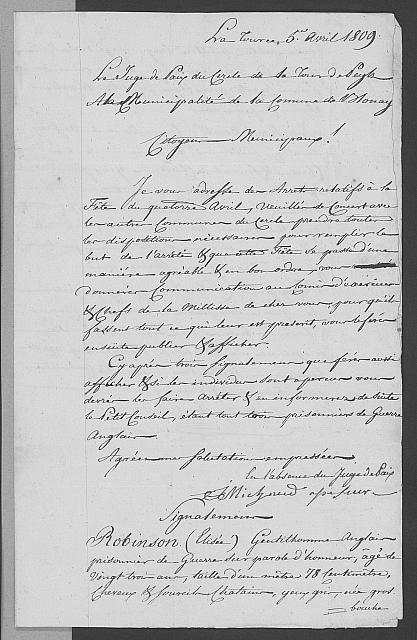 La Tour ce 5e Avril 1809.
Le Juge de Paix du Cercle de la Tour de Peylz
A la Municipalité de la Comune de Blonay
Citoyens Municipaux!
Je vous adresse des Arretés relatifs à la
Fête du quatorze Avril, Veuillés de Concert avec
les autres Communes du Cercle prendre toutes
les dispositions nécessaires pour remplir le
but de l'arreté & que cette Fête se passe d'une
maniére agréable & en bon ordre, vous
donnerés Communication au Comis d'exercice
& Chefs de la Millisse de chez vous, pour qu'ils
fassent tout ce qui leur est prescrit, vous le ferés
ensuite publier & afficher.
Cy après trois signalements que ferés aussi
afficher & si les individus sont apercus vous
devrés les faire Arrêter & en informerés de suite
le Petit Conseil, étant tout trois prisonniers de Guerre
Anglais
Agréés mes salutations empressées
En l'absence du Juge de Paix
assesseur
Signalements
Robinson (Elisée) Gentilhomme Anglais
prisonnier de Guerre sur parole d'honneur, âgé de
Vingt trois ans, taille d'un mètre 78 Centimètres,
Cheveux & sourcils Chatains, yeux gris, nés gros
bouche